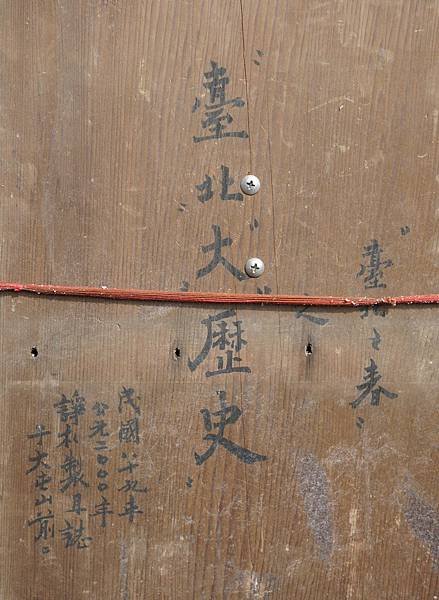 〝臺北之春〞
之
〝臺〞〝北〞〝大〞〝歷史〞
民國八十九年
公元二〇〇〇年
製具誌
于大屯山前。